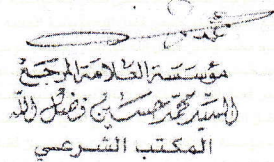 مؤسسة العلامة المرجع
السيد محمد حسين فضل الله
المكتب الشرعي